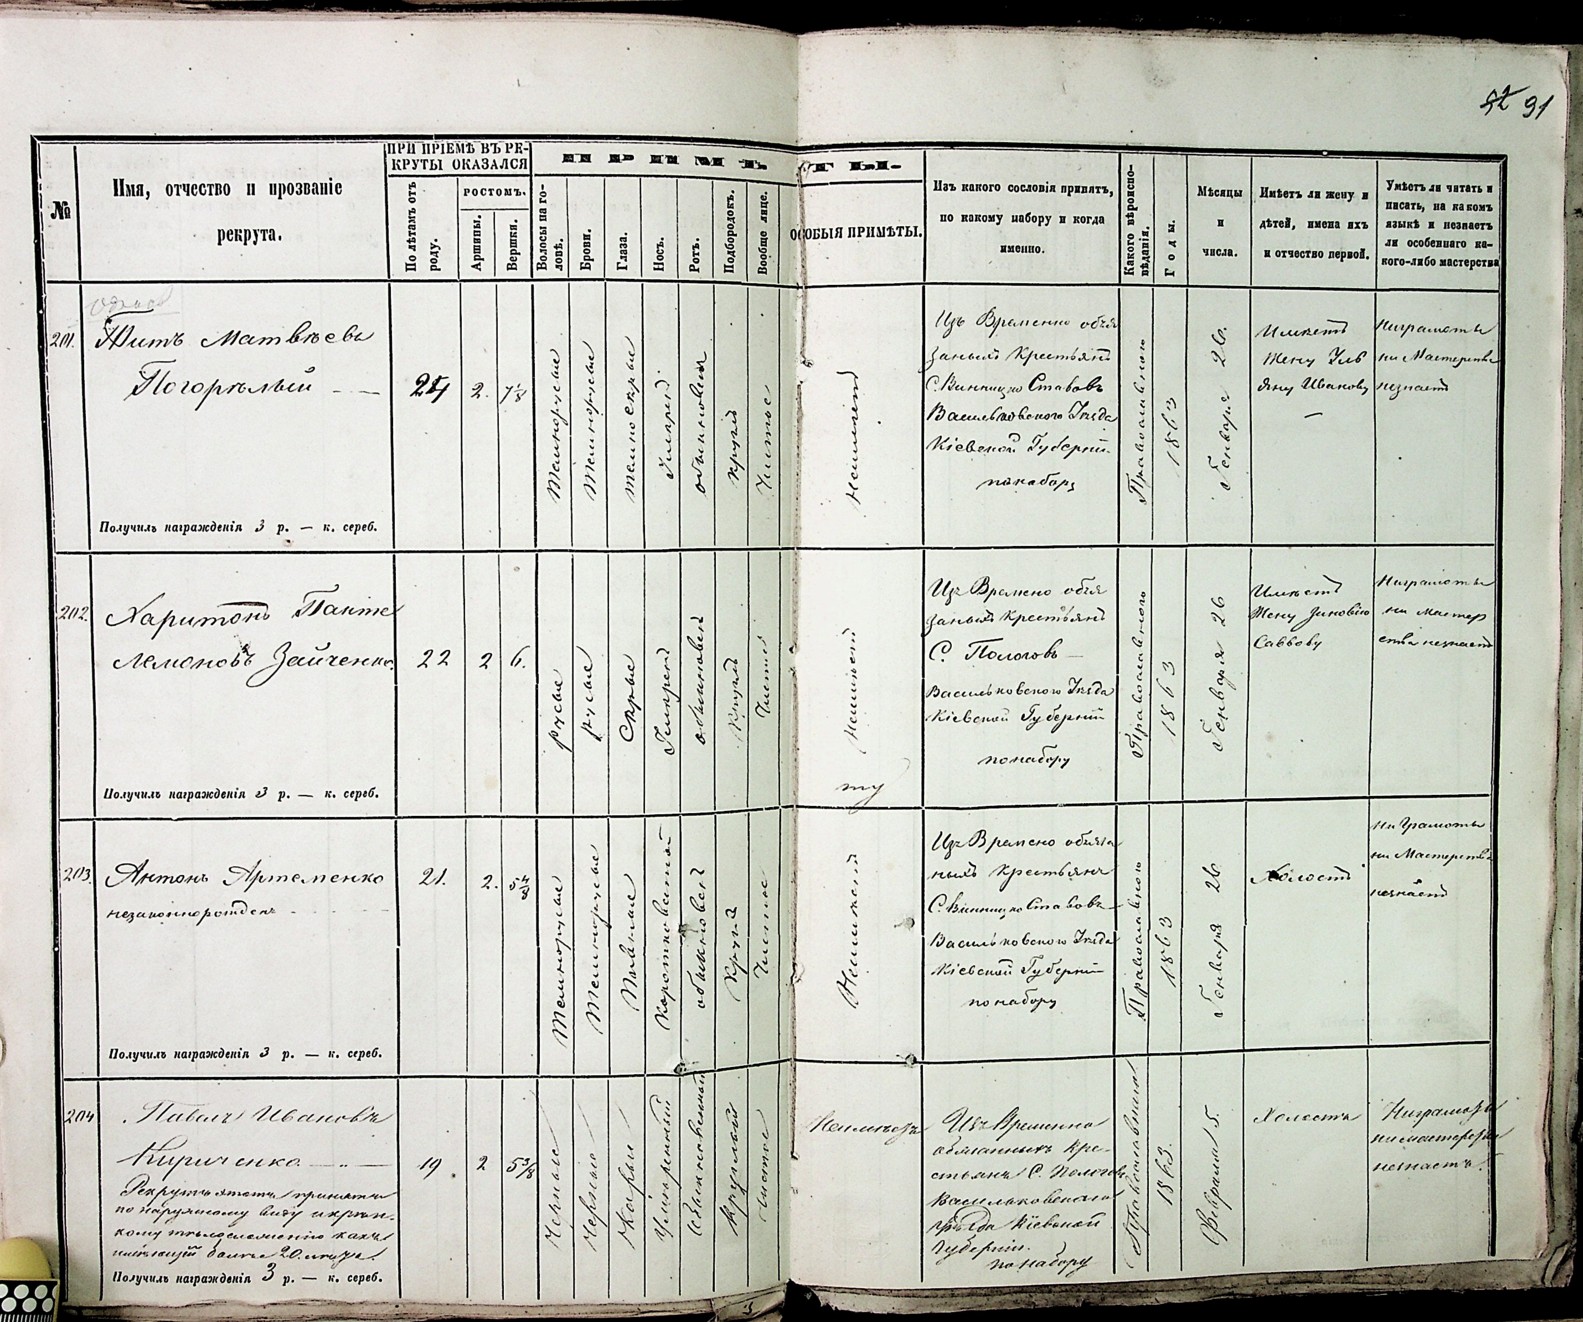 91
№
Имя, отчество и прозваніе
рекрута.
ПРИ ПРІЕМѢ ВЪ РЕ-
КРУТЫ ОКАЗАЛСЯ
По лѣтамъ отъ
роду.
РОСТОМЪ.
Аршины.
Вершки.
ПРИМѢТЫ.
Волосы на го-
ловѣ.
Брови.
Глаза.
Носъ.
Ротъ.
Подбородокъ.
Вообще лице.
ОСОБЫЯ ПРИМѢТЫ.
Изъ какого сословія принятъ,
по какому набору и когда
именно.
Какого вѣроиспо-
вѣданія.
Годы.
Мѣсяцы
и
числа.
Имѣетъ ли жену и
дѣтей, имена ихъ
и отчество первой.
Умѣетъ ли читать и
писать, на какомъ
языкѣ и незнаетъ
ли особеннаго ка-
кого-либо мастерства
201.
Титъ Матвѣевъ
Погорѣлый
2. 7 1/8
Темнорусые
Темнорусые
темносерые
Умерен
обыкновен
кругл
Чистое
Неимеет
Изъ Временно обяз
занных Крестьян
С. Винницко Ставовъ
Васильковского Уезда
Кіевской Губерніи
понабору
Православного
1863
Генваря 26.
Имеет
Жену Уль
яну Иванову
Награмоты
ни Мастерства
незнает
Получилъ награжденія 3 р. — к. сереб.
202.
Харитонъ Панте
лемоновъ Зайченко
22 2 6.
русые
русые
Серые
Умерен
обыкновен
Кругл
Чистое
Неимеет
Из Времено обяз
занных Крестьян
С. Пологовъ
Васильковского Уезда
Кіевской Губерніи
понабору
Православного
1863
Генваря 26
Имеет
Жену Зиновію
Саввову
Награмоты
ни мастер
ства незнает
Получилъ награжденія 3 р. — к. сереб.
203.
Антонъ Артеменко
незаконнорожден
21. 2. 5 4/8
Темнорусые
Темнорусые
Коротковатой
обыкновен
Кругл
Чистое
Неимеет
Из Времено обяза
ных Крестьян
С. Винницко Ставовъ
Васильковского Уезда
Кіевской Губерніи
понабору
Православного
1863
Генваря 26
Холост
ни Грамоты
ни Мастерства
незнает
Получилъ награжденія 3 р. — к. сереб.
204
Павелъ Ивановъ
Кириченко
Рекрутъ этотъ принятъ
по наружному виду и креп-
кому телосложению какъ
имеющій более 20. летъ
19 2 5 3/8
Черные
Черные
Карые
Умѣренный
Обыкновенный
Круглый
Чистое
Неимѣетъ
Изъ Временно
обязанныхъ кре-
стьянъ С. Пологовъ
Васильковскаго
уѣзда Кіевской
Губерніи.
по набору
Православнаго
1863.
Февраля 5.
Холостъ
Награмоты
ни мастерства
незнаетъ.
Получилъ награжденія 3 р. — к. сереб.